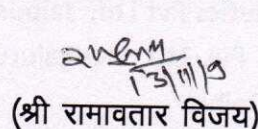 13/11/19
(श्री रामावतार विजय)